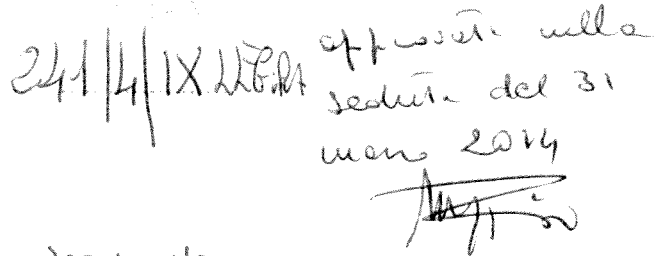 241/4/IX LEG.RA
approvata nella
seduta del 31
marzo 2014